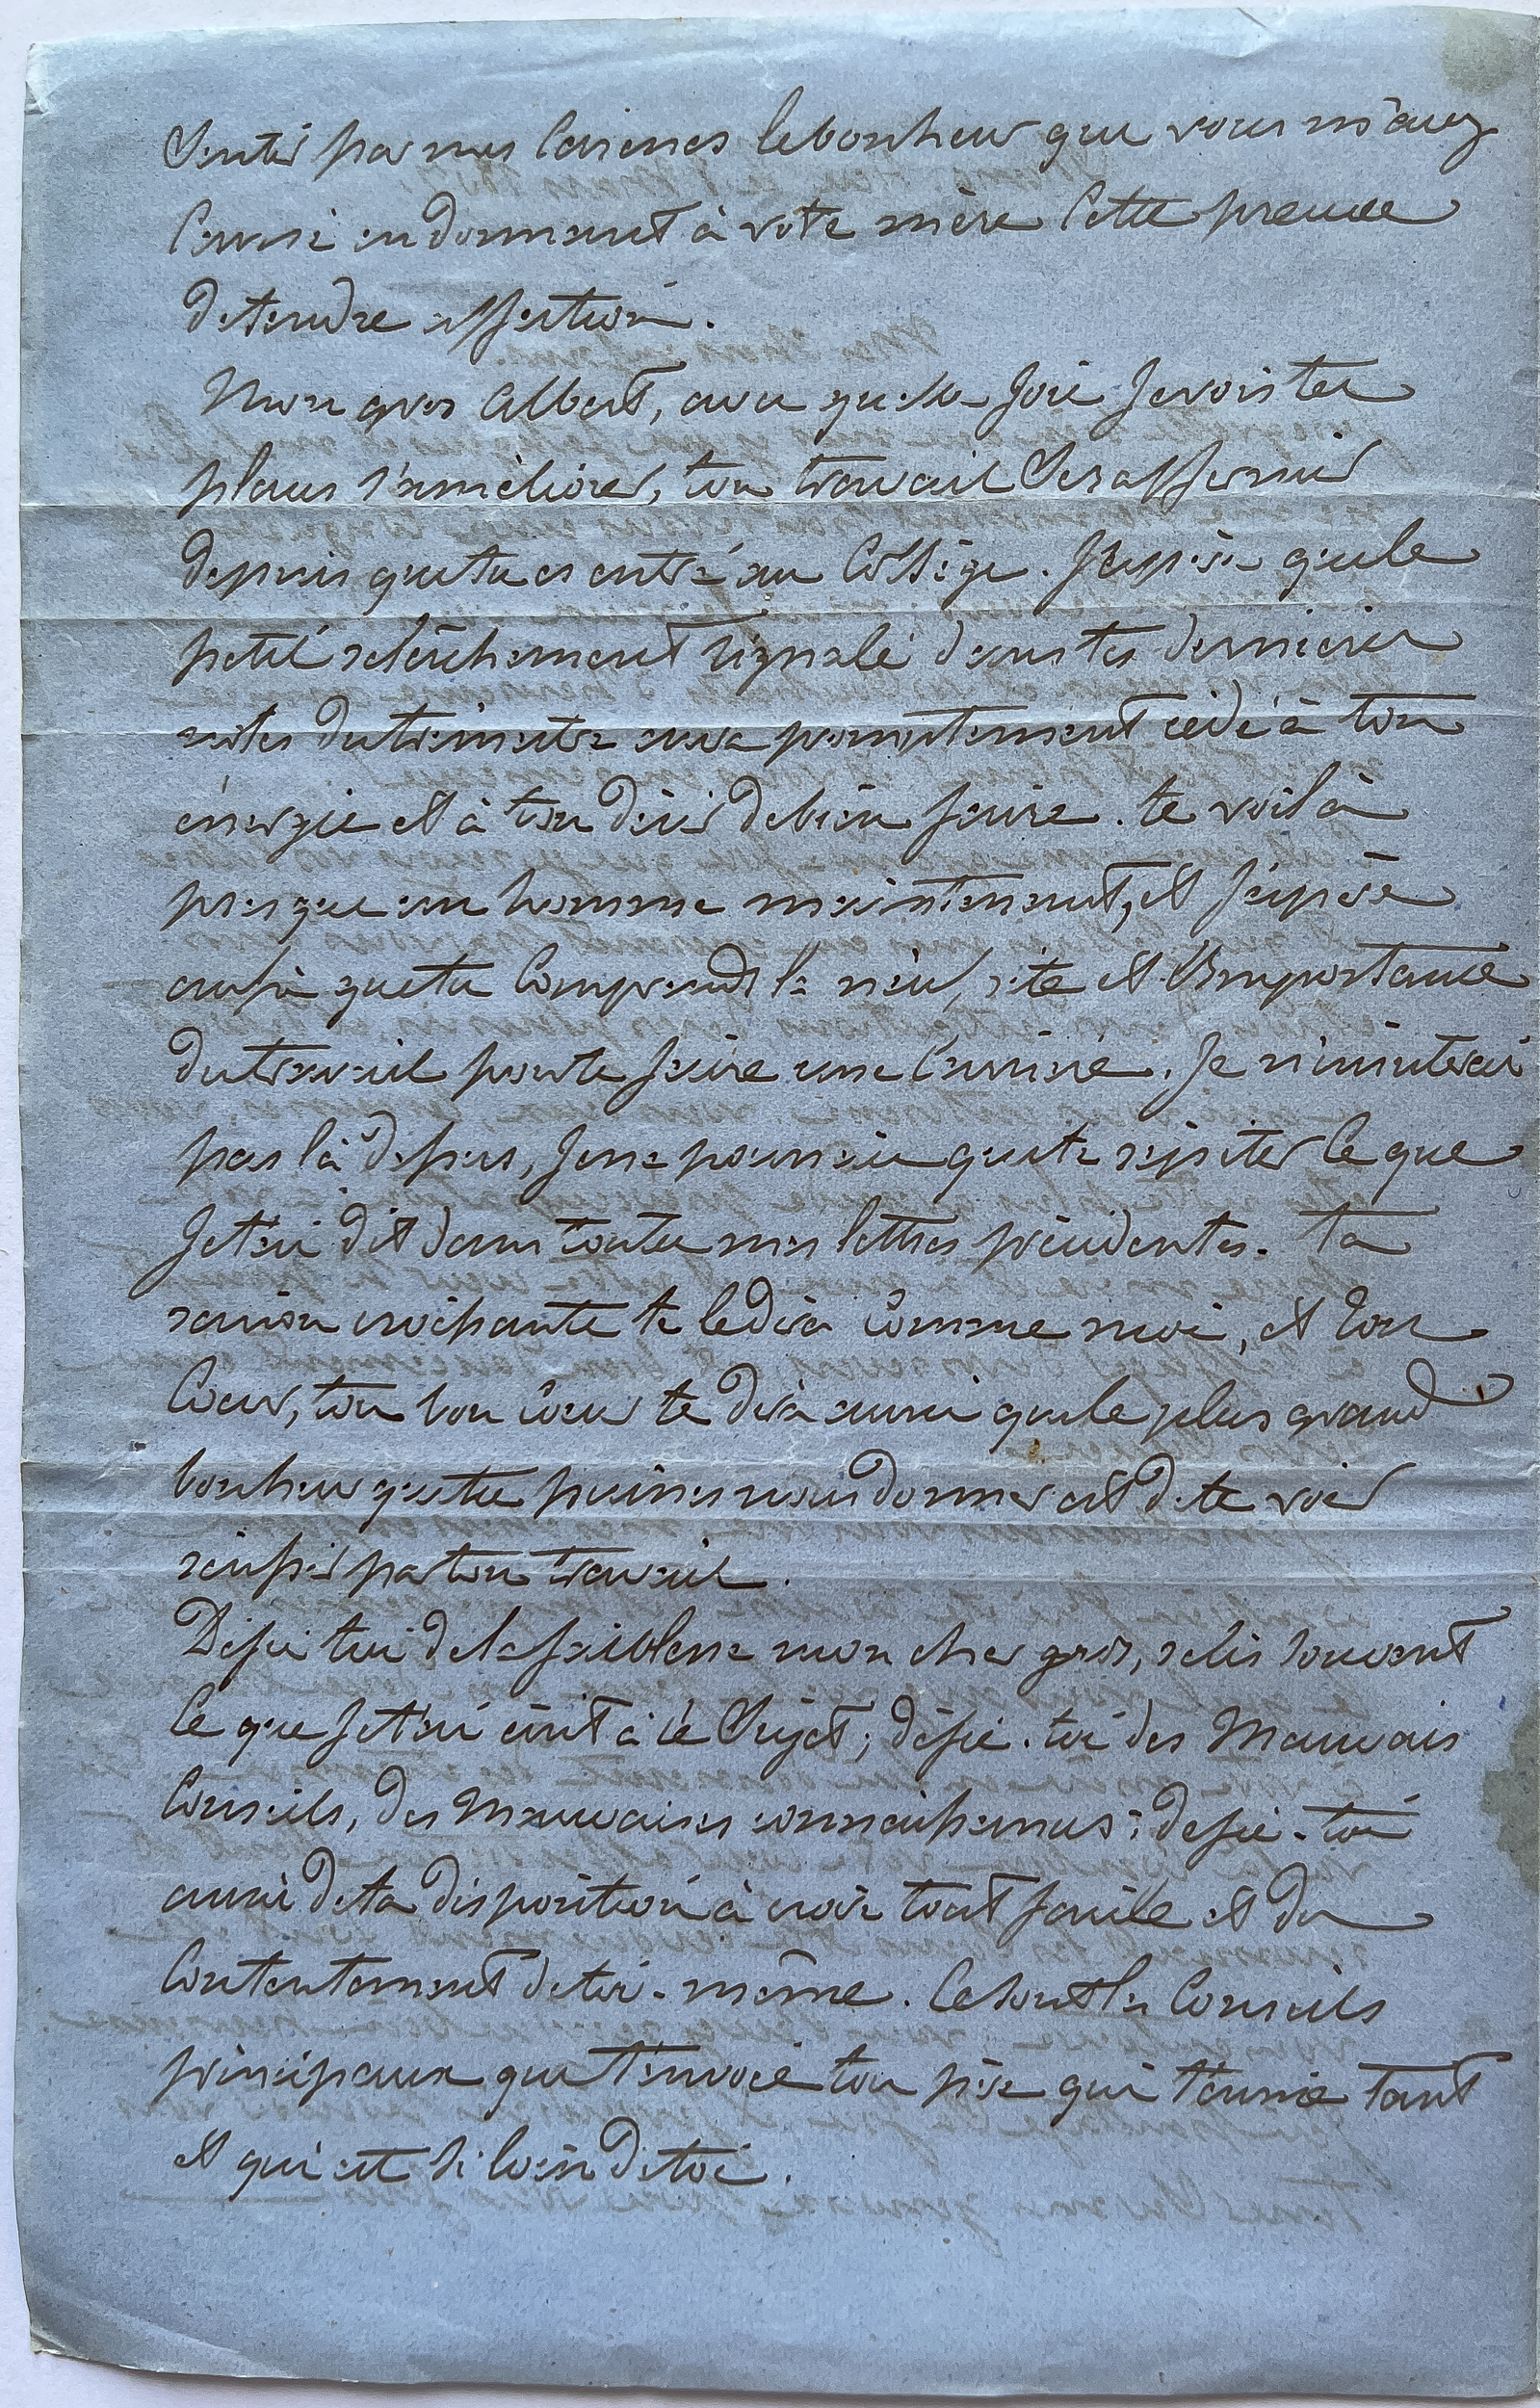 Sentir par mes caresses le bonheur que vous m'avez
causé en donnant à votre mère cette preuve
de tendre affection.
Mon gros Albert, avec quelle joie je vois tes
places s'améliorer, ton travail se raffermir
depuis que tu es entré au Collège. J'espère que le
petit relâchement signalé dans tes dernières
notes du trimestre aura promptement cédé à ton
énergie et à ton désir de bien faire. te voilà
presque un homme maintenant, et j'espère
aussi que tu comprends la nécessité et l'importance
du travail pour te faire une carrière. Je n'insisterai
pas là dessus, je ne pourrais que te répéter ce que
je t'ai dit dans toutes mes lettres précédentes. ta
raison croissante te le dira comme moi, et ton
Cœur, ton bon cœur te dira aussi que le plus grand
bonheur que tu puisses nous donner est de te voir
réussir par ton travail.
Défie toi de la faiblesse mon cher gros, relis souvent
ce que je t'ai écrit à ce sujet; défie-toi des Mauvais
Conseils, des Mauvaises connaissances; defie-toi
aussi de ta disposition à croire tout facile et du
Contentement de toi-même. Ce sont les Conseils
principaux que t'envoie ton père qui t'aime tant
et qui est si loin de toi.